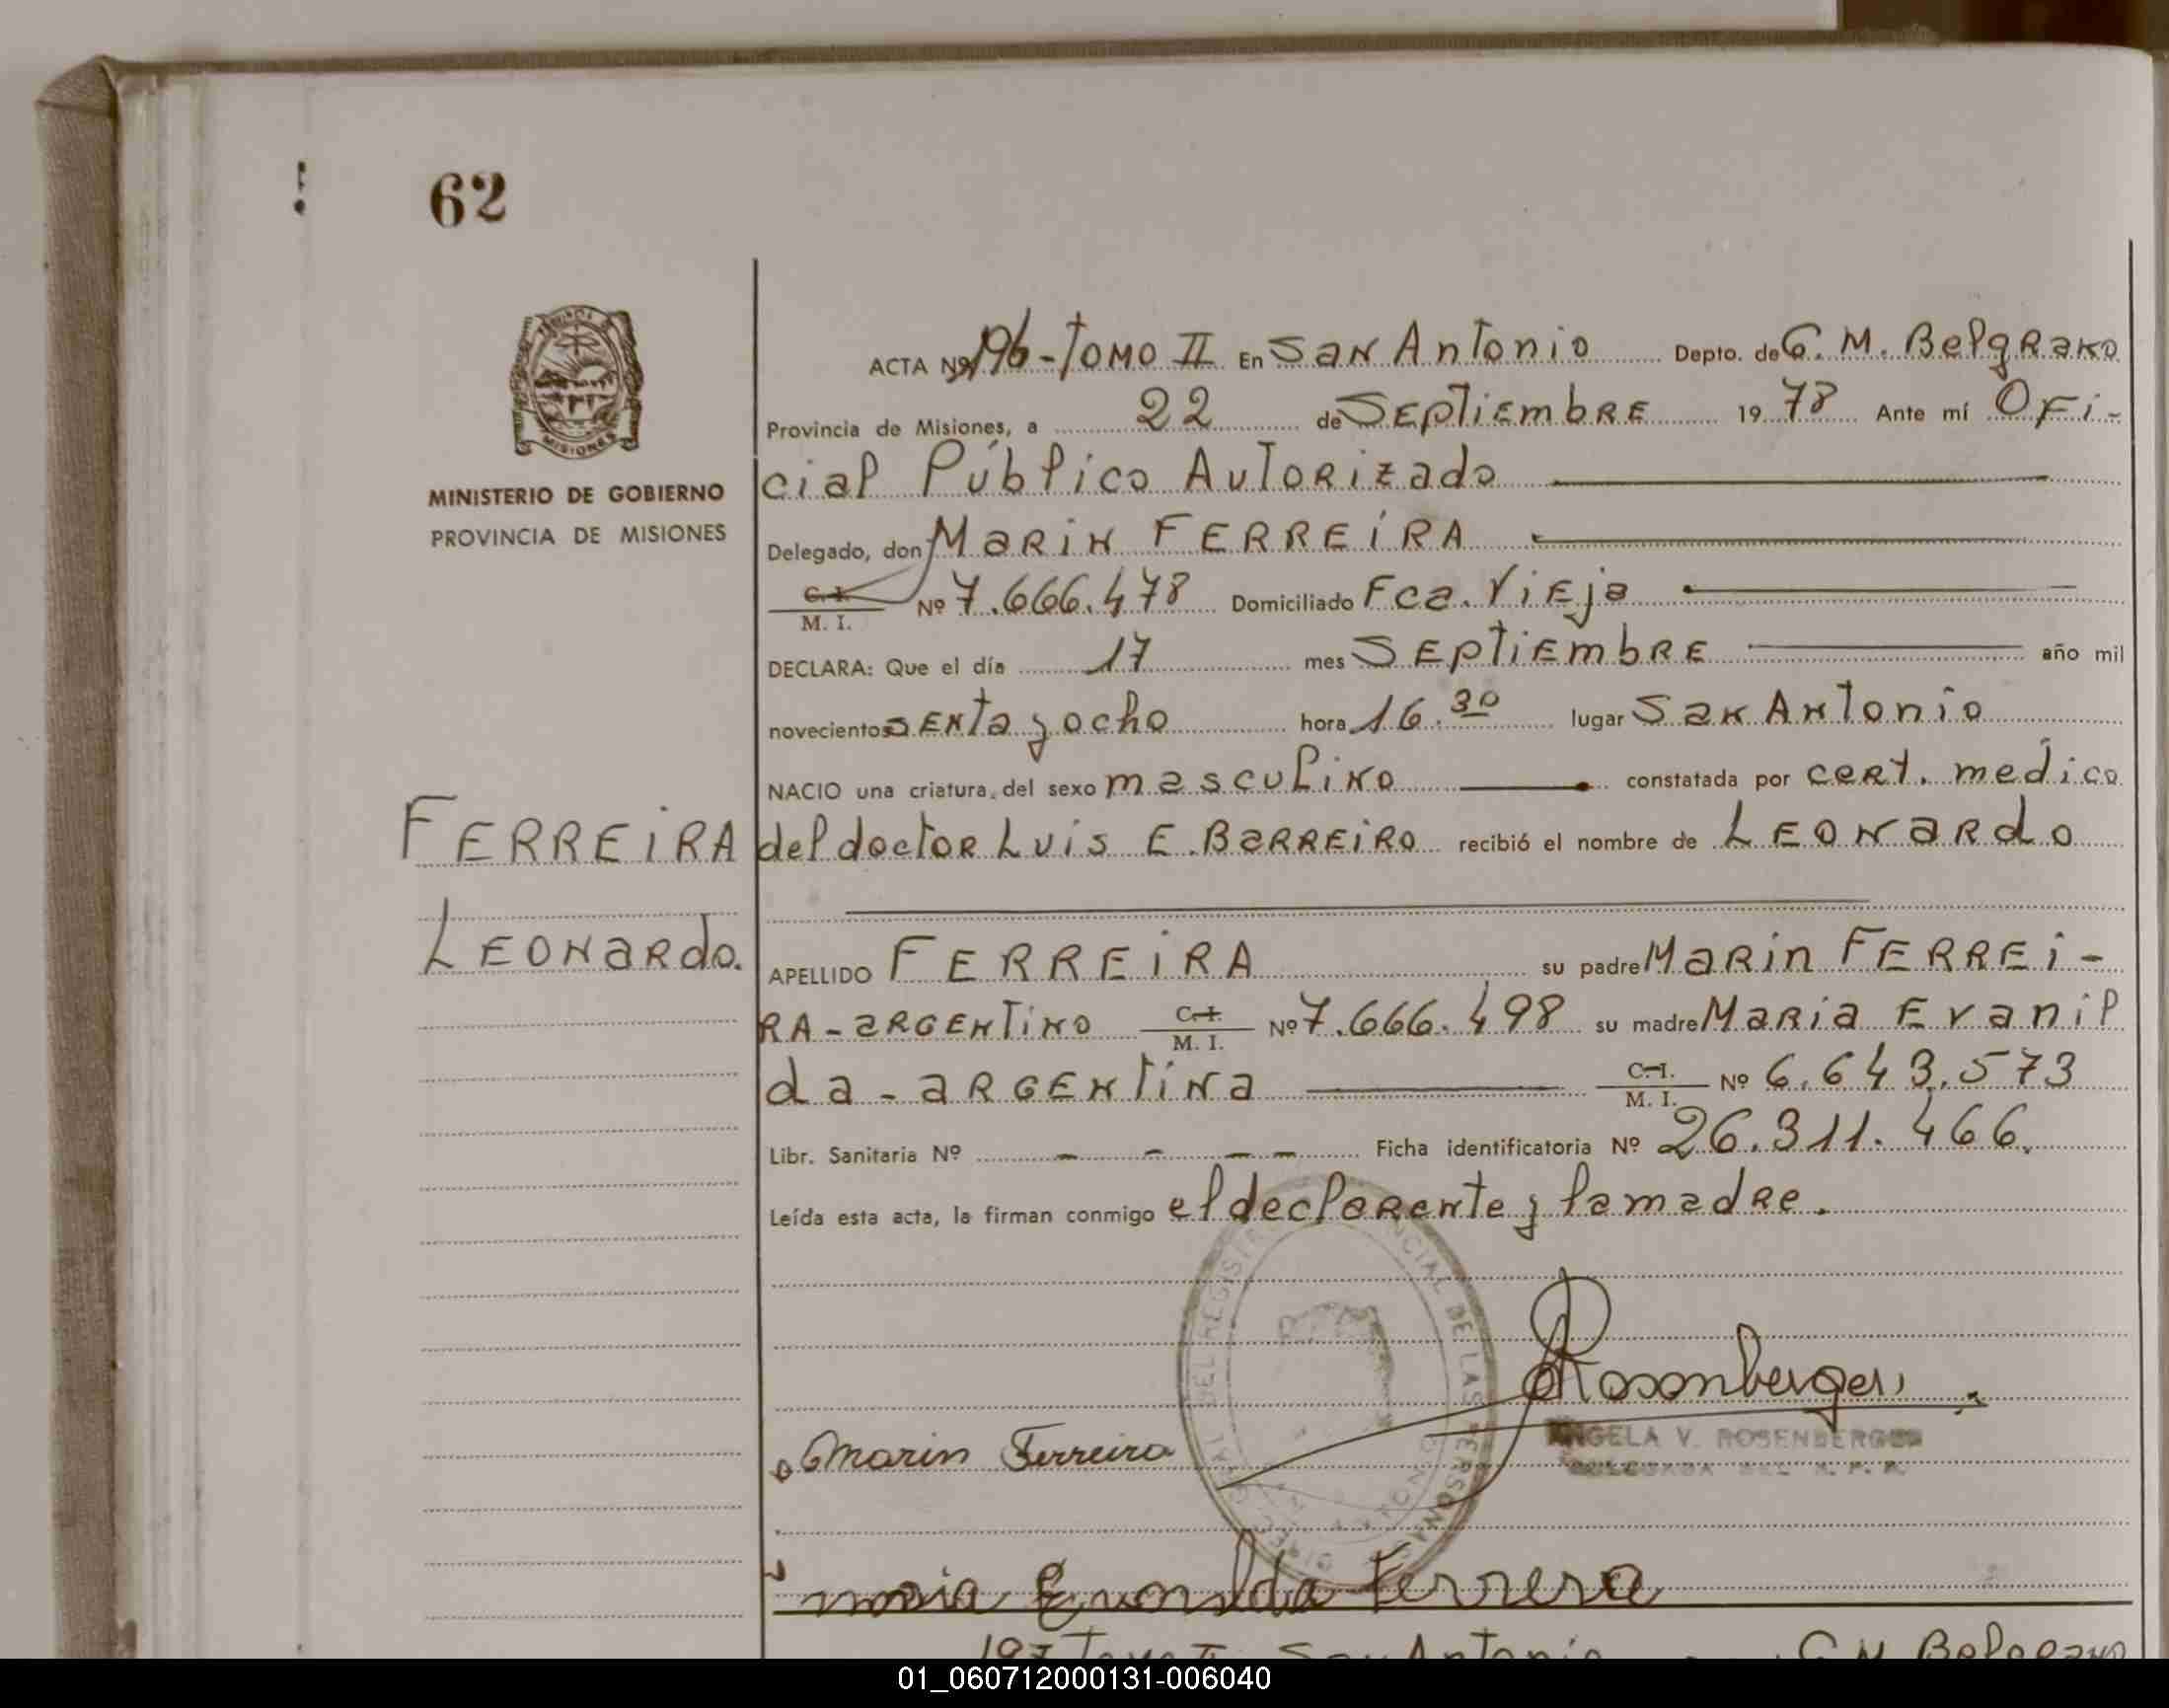 62
MISIONES
MINISTERIO DE GOBIERNO
PROVINCIA DE MISIONES
FERREIRA
LEONARDO.
ACTA Nº 196 - TOMO II En San Antonio Depto. de G. M. Belgrano
Provincia de Misiones, a 22 de Septiembre 1978 Ante mí Ofi-
cial Público Autorizado
Delegado, don Marin FERREIRA
C. I. M. I. Nº 7.666.478 Domiciliado Fca. Vieja
DECLARA: Que el día 17 mes Septiembre año mil
novecientos enta y ocho hora 16.30 lugar San Antonio
NACIO una criatura del sexo masculino constatada por cert. medico
del doctor Luis E. Barreiro recibió el nombre de Leonardo
APELLIDO FERREIRA su padre Marin FERREI-
RA - argentino C. I. M. I. Nº 7.666.498 su madre Maria Evanil
da - argentina C. I. M. I. Nº 6.643.573
Libr. Sanitaria Nº - - - - Ficha identificatoria Nº 26.311.466.
Leída esta acta, la firman conmigo el declarante y la madre.
Rosenberger
ANGELA V. ROSENBERGER
Marin Ferreira
DEL REGISTRO PROVINCIAL DE LAS PERSONAS
maria Evanilda Ferrera
197 Tomo II San Antonio G. M. Belgrano
01_060712000131-006040